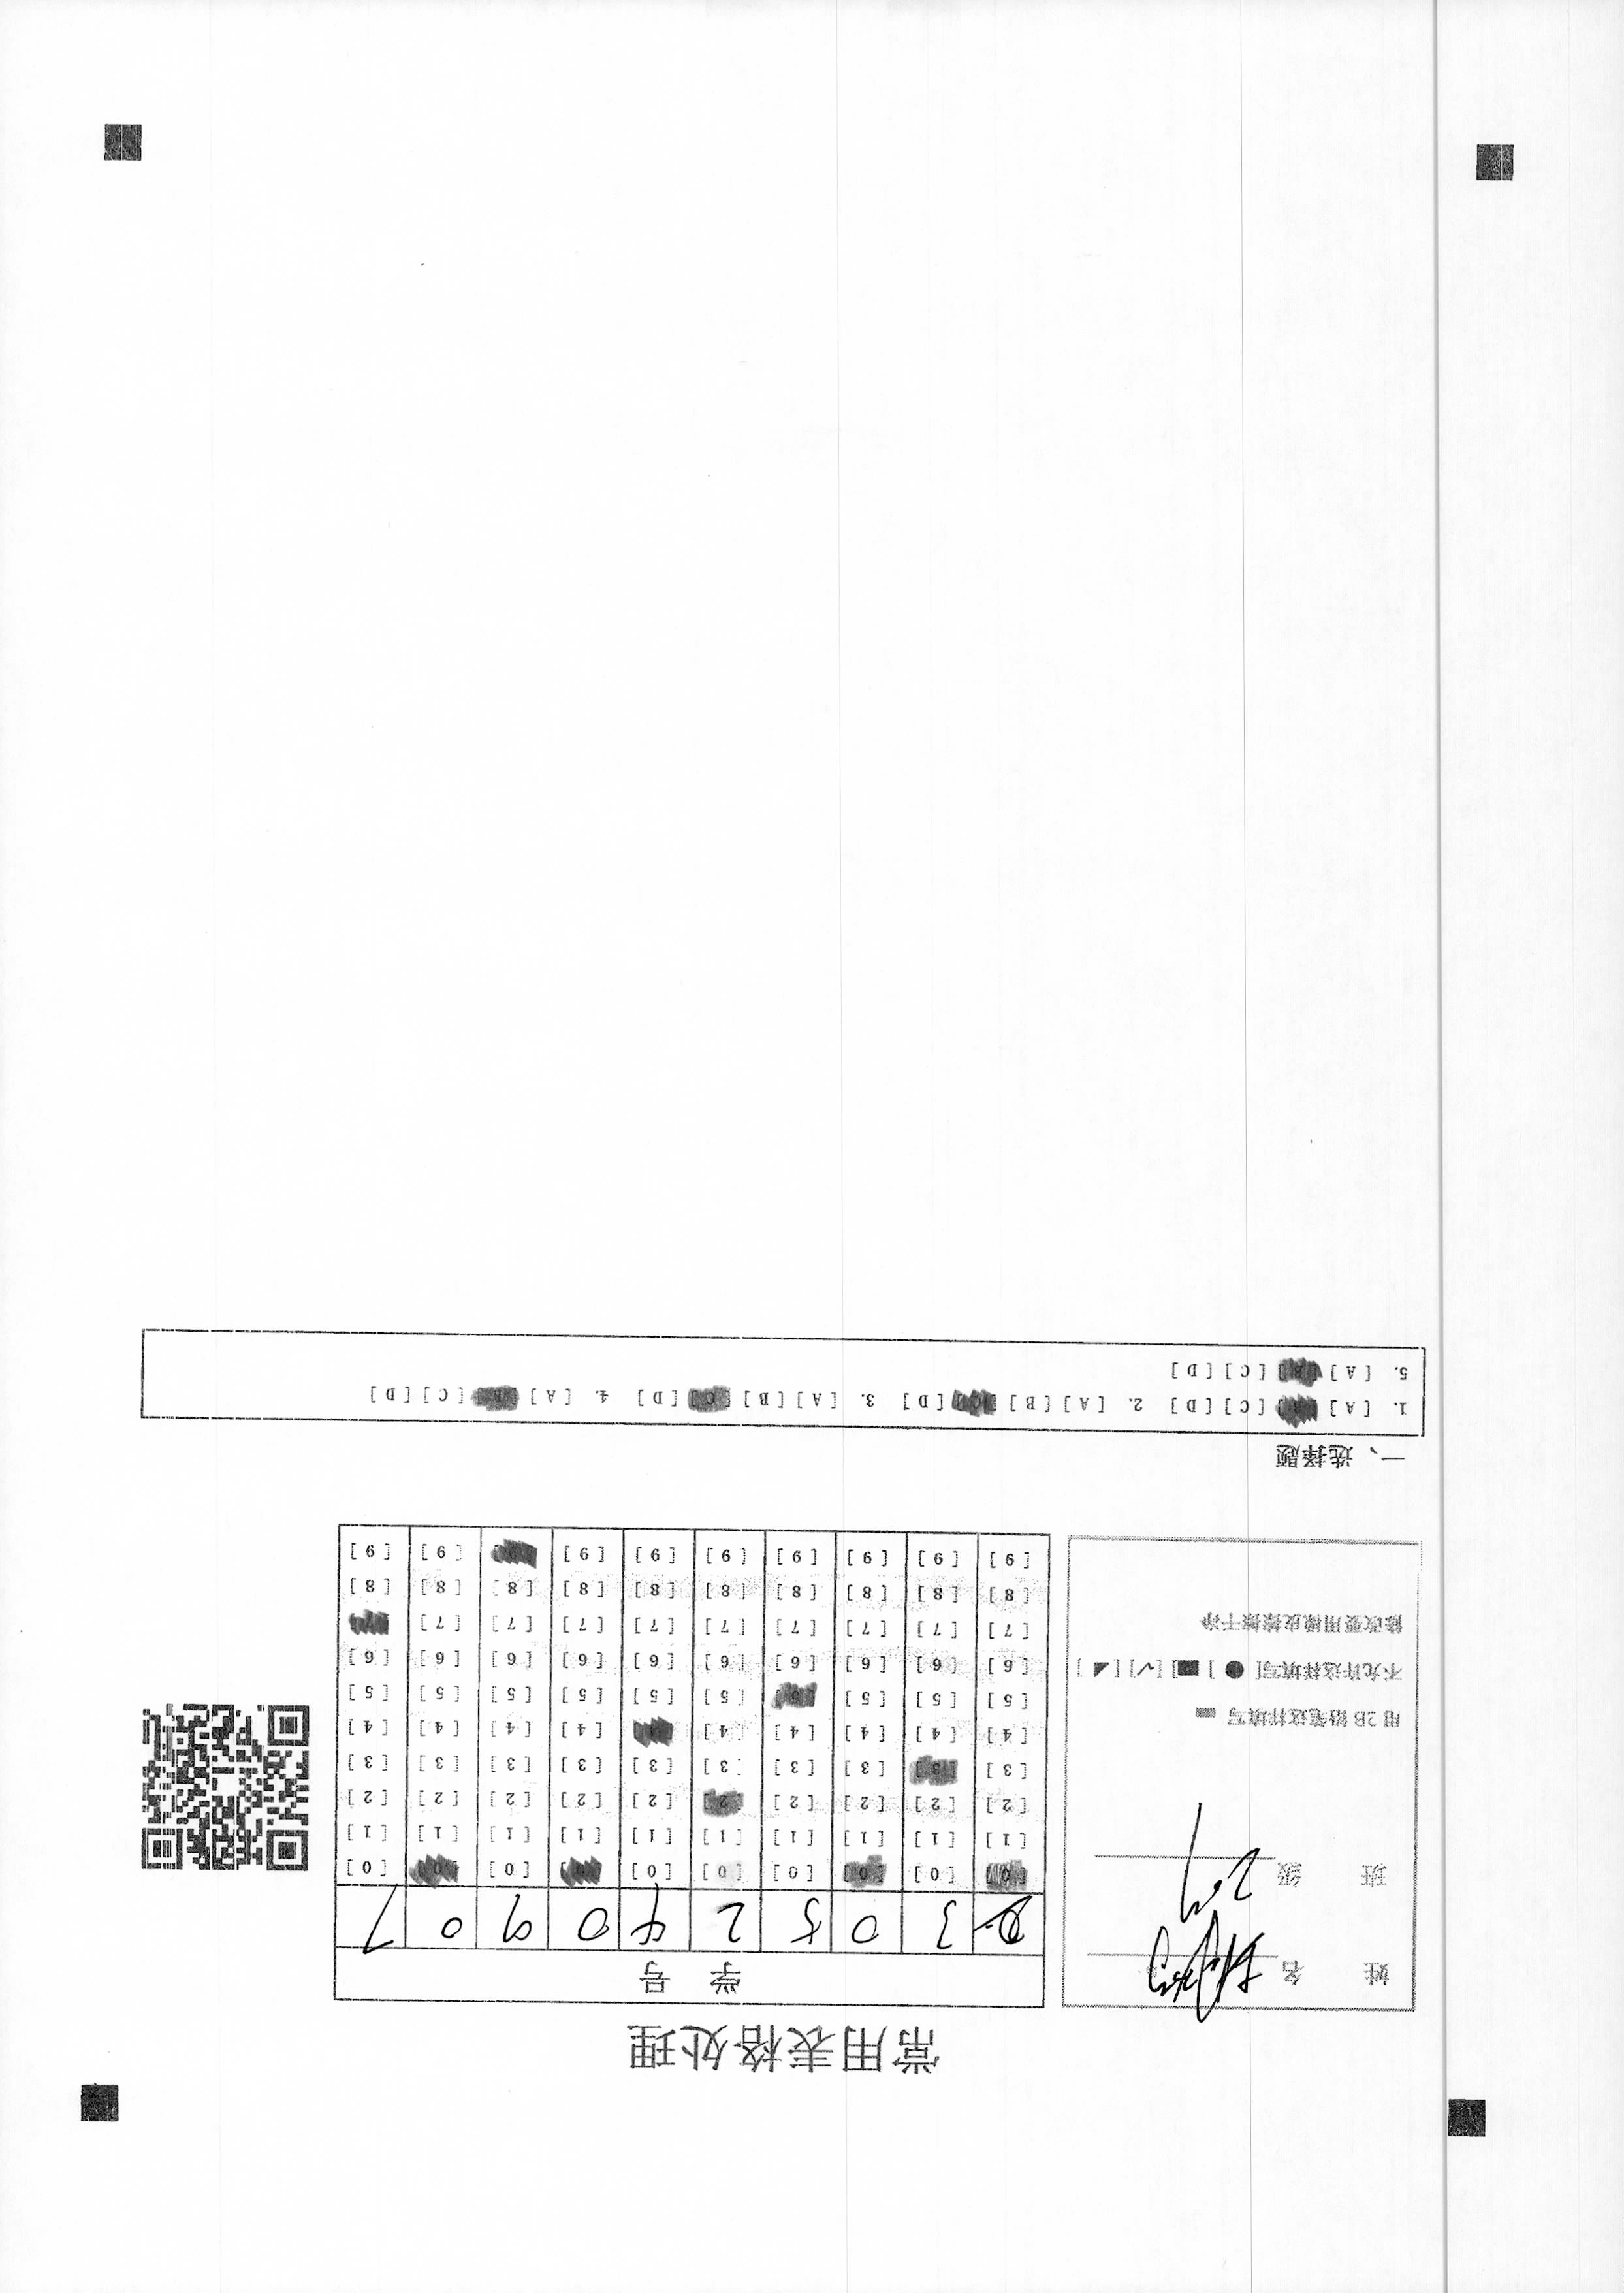 常用表格处理
姓 名
班 级
用 2B 铅笔这样填写
不允许这样填写[●] [■] [√] [◢]
修改要用橡皮擦擦干净
学 号
0 3 0 5 2 4 0 9 0 7
[0] [0] [0] [0] [0] [0] [0] [0] [0] [0]
[1] [1] [1] [1] [1] [1] [1] [1] [1] [1]
[2] [2] [2] [2] [2] [2] [2] [2] [2] [2]
[3] [3] [3] [3] [3] [3] [3] [3] [3] [3]
[4] [4] [4] [4] [4] [4] [4] [4] [4]
[5] [5] [5] [5] [5] [5] [5] [5] [5] [5]
[6] [6] [6] [6] [6] [6] [6] [6] [6] [6]
[7] [7] [7] [7] [7] [7] [7] [7] [7]
[8] [8] [8] [8] [8] [8] [8] [8] [8] [8]
[9] [9] [9] [9] [9] [9] [9] [9] [9]
一、选择题
1. [A] [B] [C] [D] 2. [A] [B] [C] [D] 3. [A] [B] [C] [D] 4. [A] [B] [C] [D]
5. [A] [B] [C] [D]